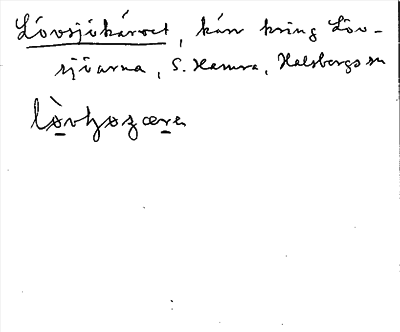 Lövsjökärret, kärr kring Löv-
sjöarna, S. Hamra, Halsbergs sn
lò̱vɧøʒæṟeṇ